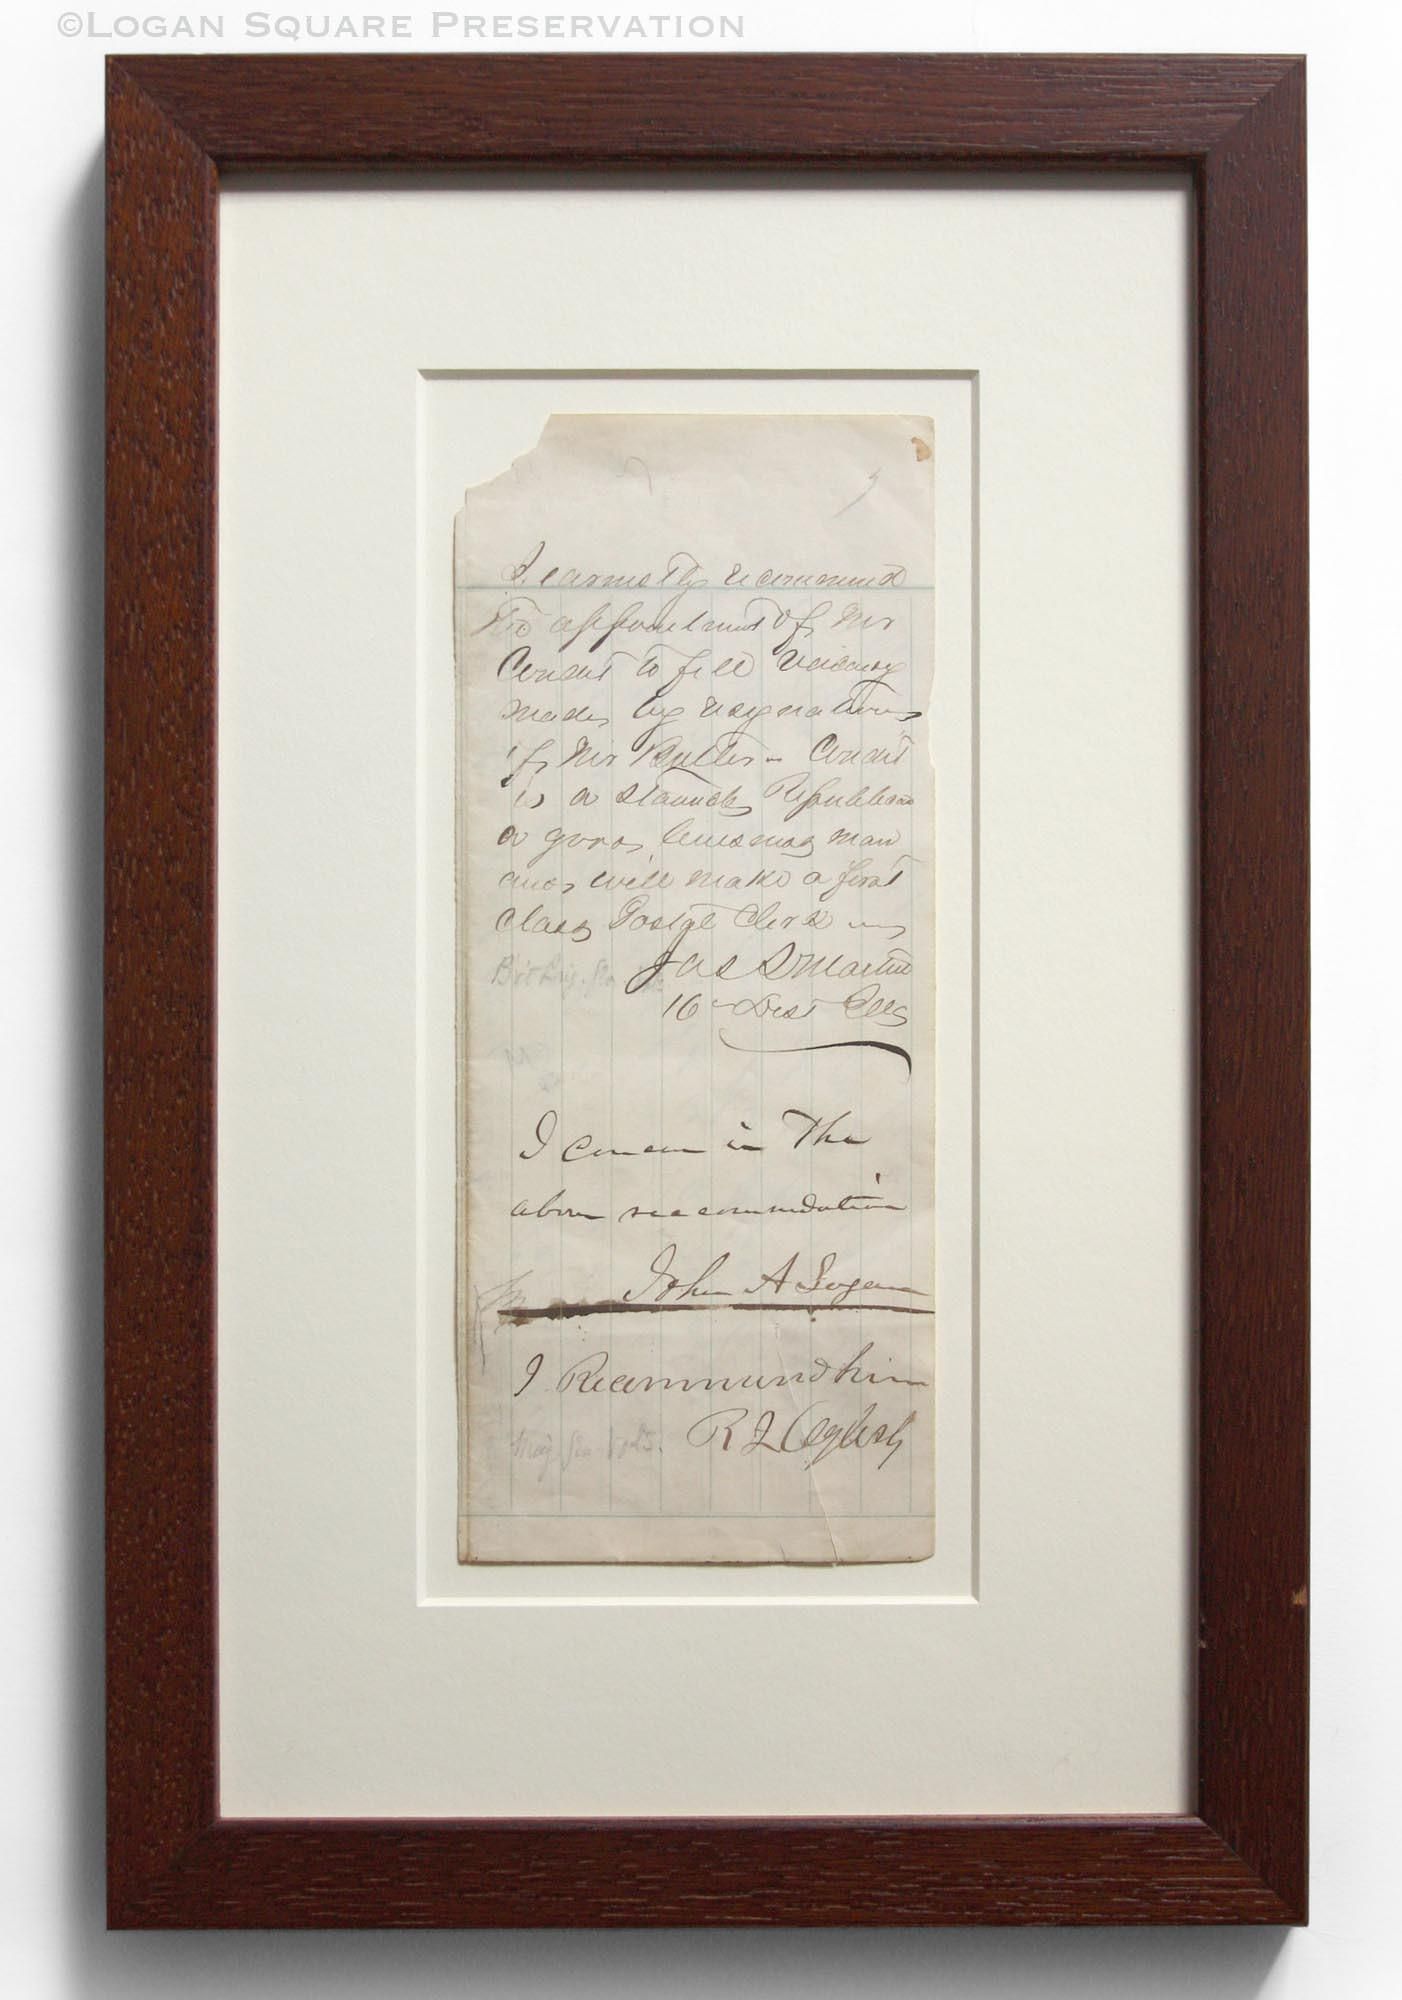 ©LOGAN SQUARE PRESERVATION
I earnestly recommend
the appointment of Mr
Condit to fill vacancy
made by resignation
of Mr Butler – Condit
is a staunch Republican
a good business man
and will make a first
class Postal Clerk
Jas S Martin
16 Dist Ills
I concur in the
above reccommendation
John A Logan
I Recommend him
R J Oglesby